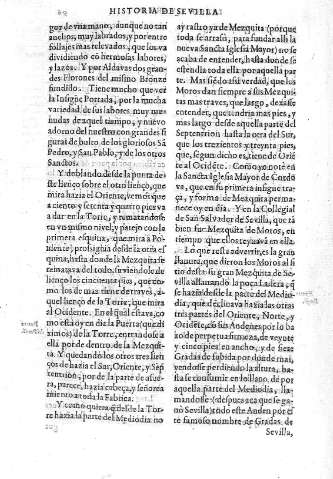 HISTORIA DE SEVILLA.
guez de vna mano, aunque no tan
anchos, muy labrados, y por entre
follajes mas releuados, que los va
diuidiendo con hermosas labores,
y lazos. Y por Aldauas dos gran-
des Florones del mismo Bronze
fundido. Tiene mucho que ver
la Insigne Portada, por la mucha
variedad de sus labores, muy me-
nudas de aquel tiempo, y nueuo
adorno del nuestro con grandes fi
guras de bulto de los gloriosos Sã
Pedro, y San Pablo, y de los otros
Sanctos.
Y doblando desde la punta de-
ste lienço sobre el otro lienço, que
mira hazia el Oriente, vemos que
a ciento y setenta y quatro pies va
a dar en la Torre, y rematandose
en vn mismo niuel, y parejo con la
primera esquina, que mira a Po-
niente, prosiguia desde la otra es
quina, hasta donde la Mezquita se
remataua del todo, siruiendole de
lienço los cincuenta pies, que co-
mo los de mas tiene de traues, a-
quel lienço de la Torre, que mira
al Occidente. En el qual estaue, co
mo esta oy en dia la Puerta (que di
ximos) de la Torre, entrandose a
ella por de dentro de la Mezqui-
ta. Y quedando los otros tres lien
ços de hazia el Sur, Oriente, y Sep
tentrion, por de la parte de afue-
ra, parece, hazia cabeça, y señorea
mento a toda la Fabrica.
Y como quiera que desde la Tor
re hazia la parte del Mediodia no
ay rastro ya de Mezquita (porque
toda se arrasò, para fundar alli la
nueua Sancta Iglesia Mayor) no se
acaba de entender, hasta donde se
estendia toda ella por aquella par
te. Mas si desto ay verdad, que los
Moros dan siempre a sus Mezqui
tas mas traues, que largo, dexase
entender, que tendria mas pies, y
mas largo desde aquella parte del
Septentrion hasta la otra del Sur,
que los trezientos y treynta pies,
que, segun dicho es, tiene de Oriẽ
te al Occidente. Como yo noté en
la Sancta Iglesia Mayor de Cordo
va, que en su primera insigne tra-
ça, y forma de Mezquita perma-
nece oy en dia. Y en la Collegial
de San Saluador de Seuilla, que tã
bien fue Mezquita de Moros, en
tiempo que ellos reynauã en ella.
Lo que resta aduertir, es la gran
llanura, que dieron los Moros al si
tio desta su gran Mezquita de Se-
uilla allanando la poca Ladera, q̃
se hazia desde la parte del Mediodia,
que declinaua hazia las otras
tres partes del Oriente, Norte, y
Occidẽte, cõ sus Andenes por lo ba
xo de perpetua firmeza, de veynte
y cinco pies en ancho, y de sceze
Gradas de subida por donde mas,
yendose perdiendo la altura, has-
ta se consumir en lo llano, de por
aquella parte del Mediodia. lla-
mandose (despues aca que se ga-
nò Seuilla) todo este Anden por es
te famoso nombre de Gradas. de
Seuilla,